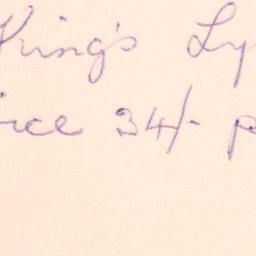 King's Ly
ice 34/- p